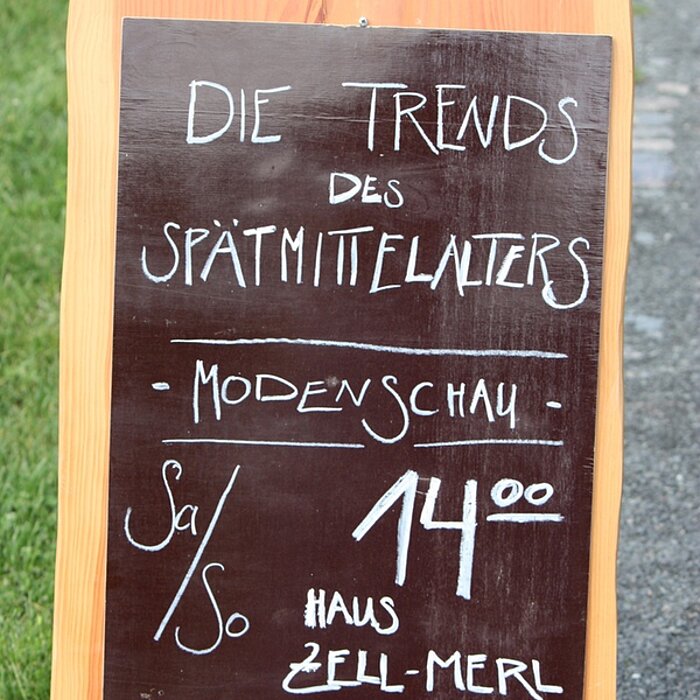 DIE TRENDS
DES
SPÄTMITTELALTERS
- MODENSCHAU -
Sa/So 14⁰⁰
HAUS
ZELL-MERL